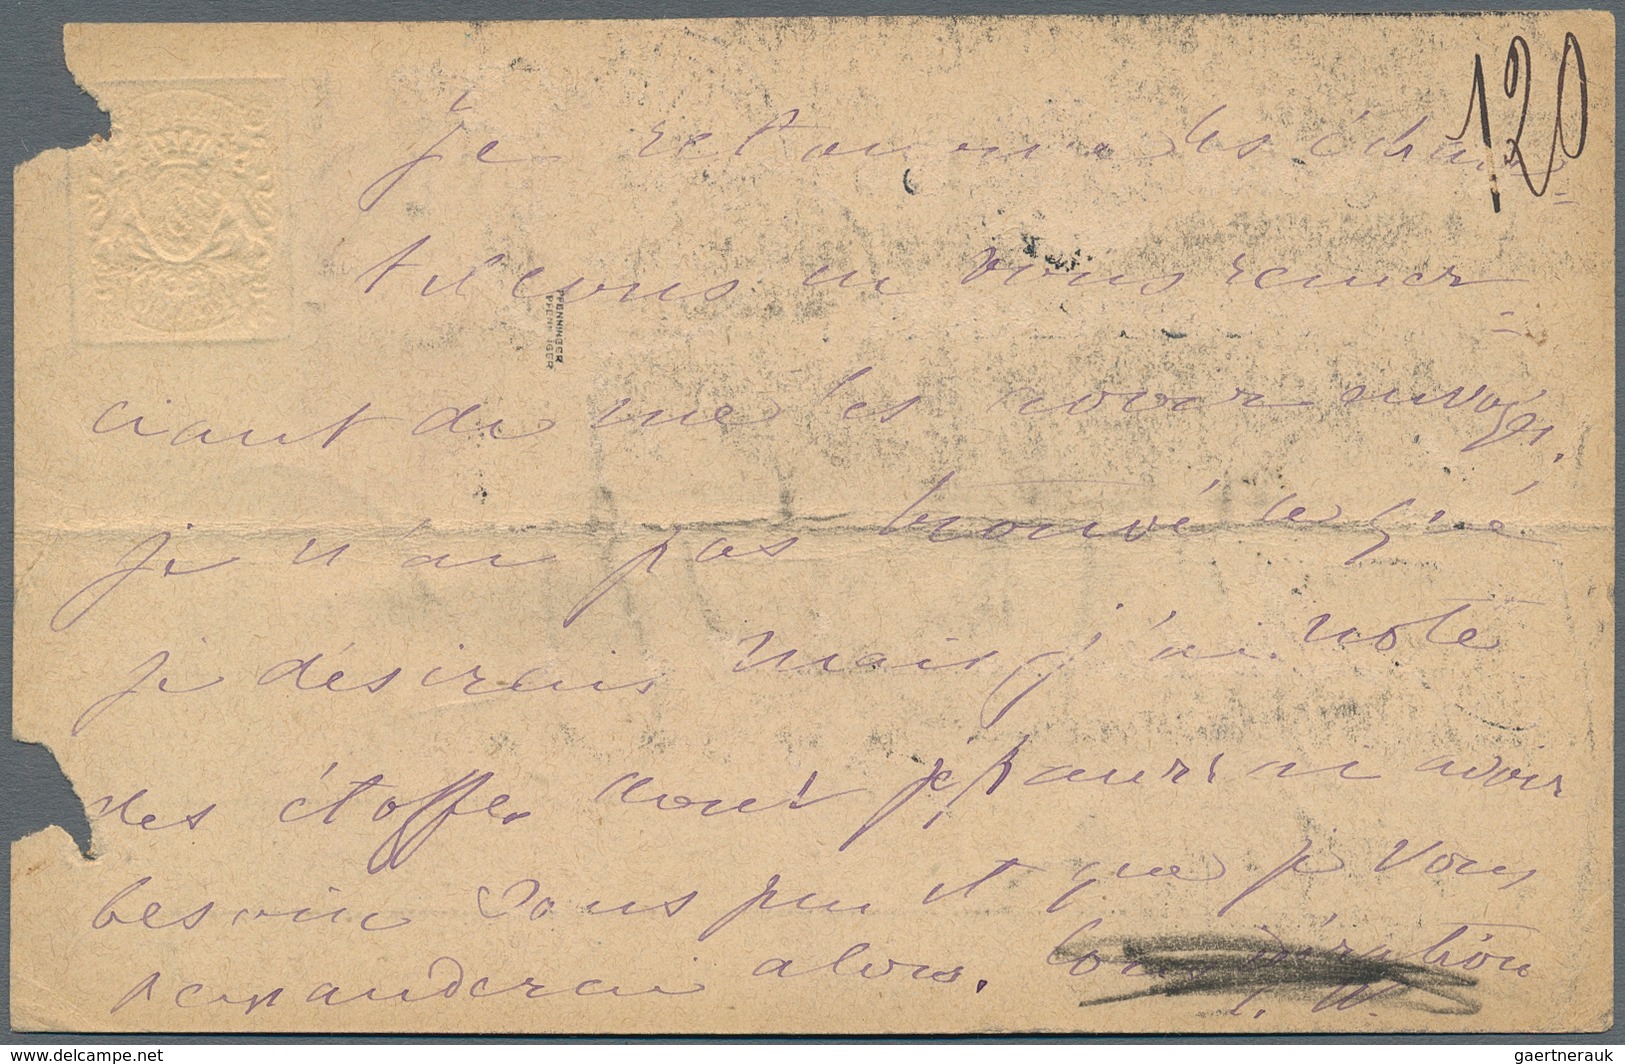 120
Je retourne les échan=
tillons en vous remer=
ciant de me les avoir envoyés.
je n'ai pas trouvé ce que
je désirais mais j'ai noté
des étoffes dont je pourrai avoir
besoin sous peu et que je vous
demanderai alors. Considération
PFENNINGER
PFENNINGER
gaertnerauk - delcampe.net